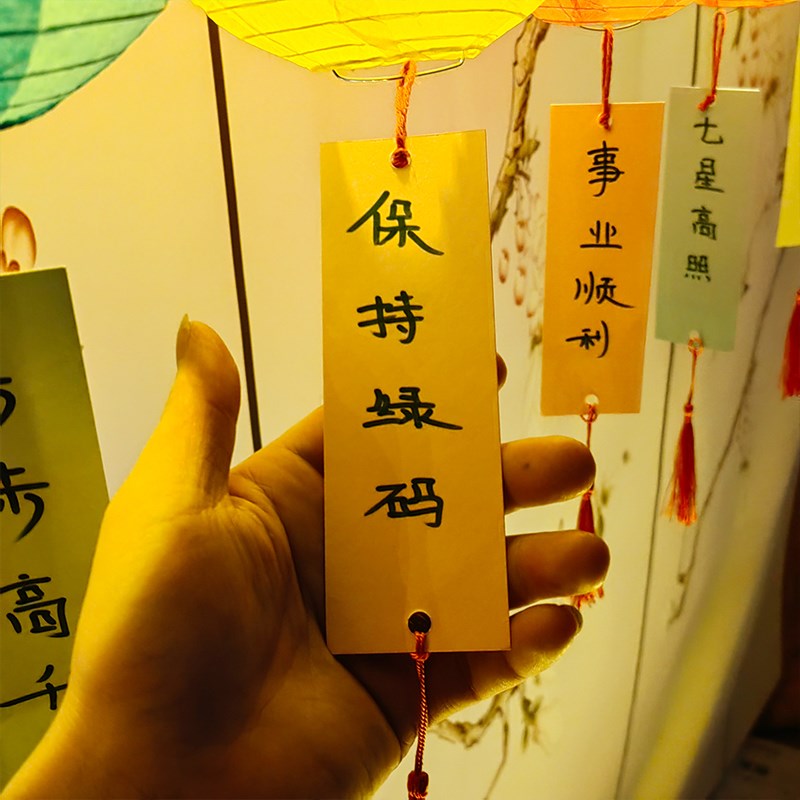 保持绿码
事业顺利
七星高照
步高